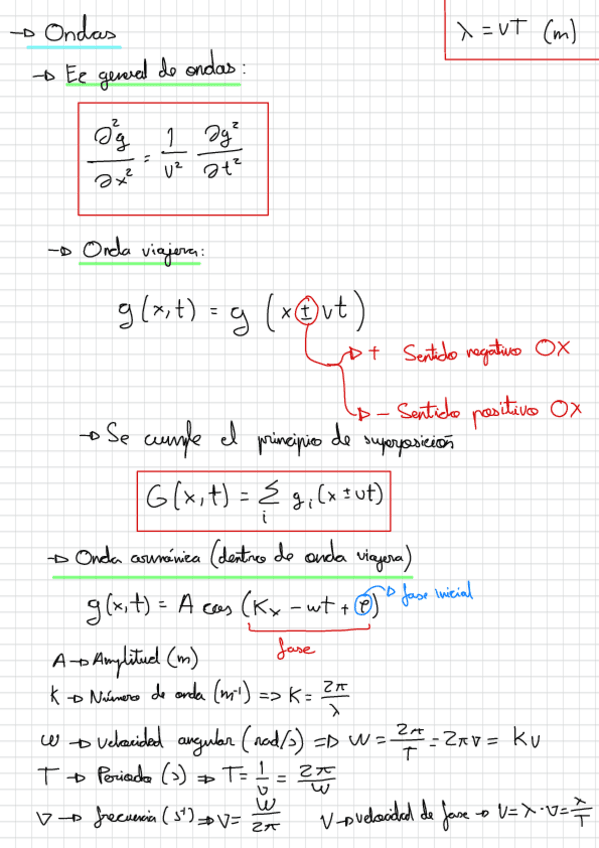 → Ondas
λ = vT (m)
→ Ec general de ondas:
∂²g/∂x² = 1/v² ∂g²/∂t²
→ Onda viajera:
g(x,t) = g (x ± vt)
→ + Sentido negativo OX
→ − Sentido positivo OX
→ Se cumple el principio de superposición
G(x,t) = Σᵢ gᵢ(x ± vt)
→ Onda armónica (dentro de onda viajera)
g(x,t) = A cos (Kx − wt + φ) → fase inicial
fase
A → Amplitud (m)
K → Número de onda (m⁻¹) => K = 2π/λ
ω → Velocidad angular (rad/s) => W = 2π/T = 2πν = Kv
T → Periodo (s) => T = 1/ν = 2π/W
ν → frecuencia (s⁻¹) => ν = W/2π V → velocidad de fase → v = λ·ν = λ/T